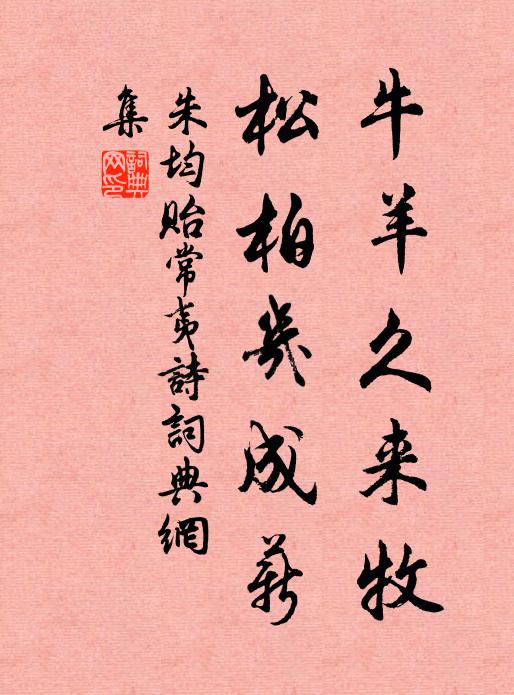 牛羊久来牧
松柏几成薪
朱均貽常夷詩詞典網
集
詞典网印